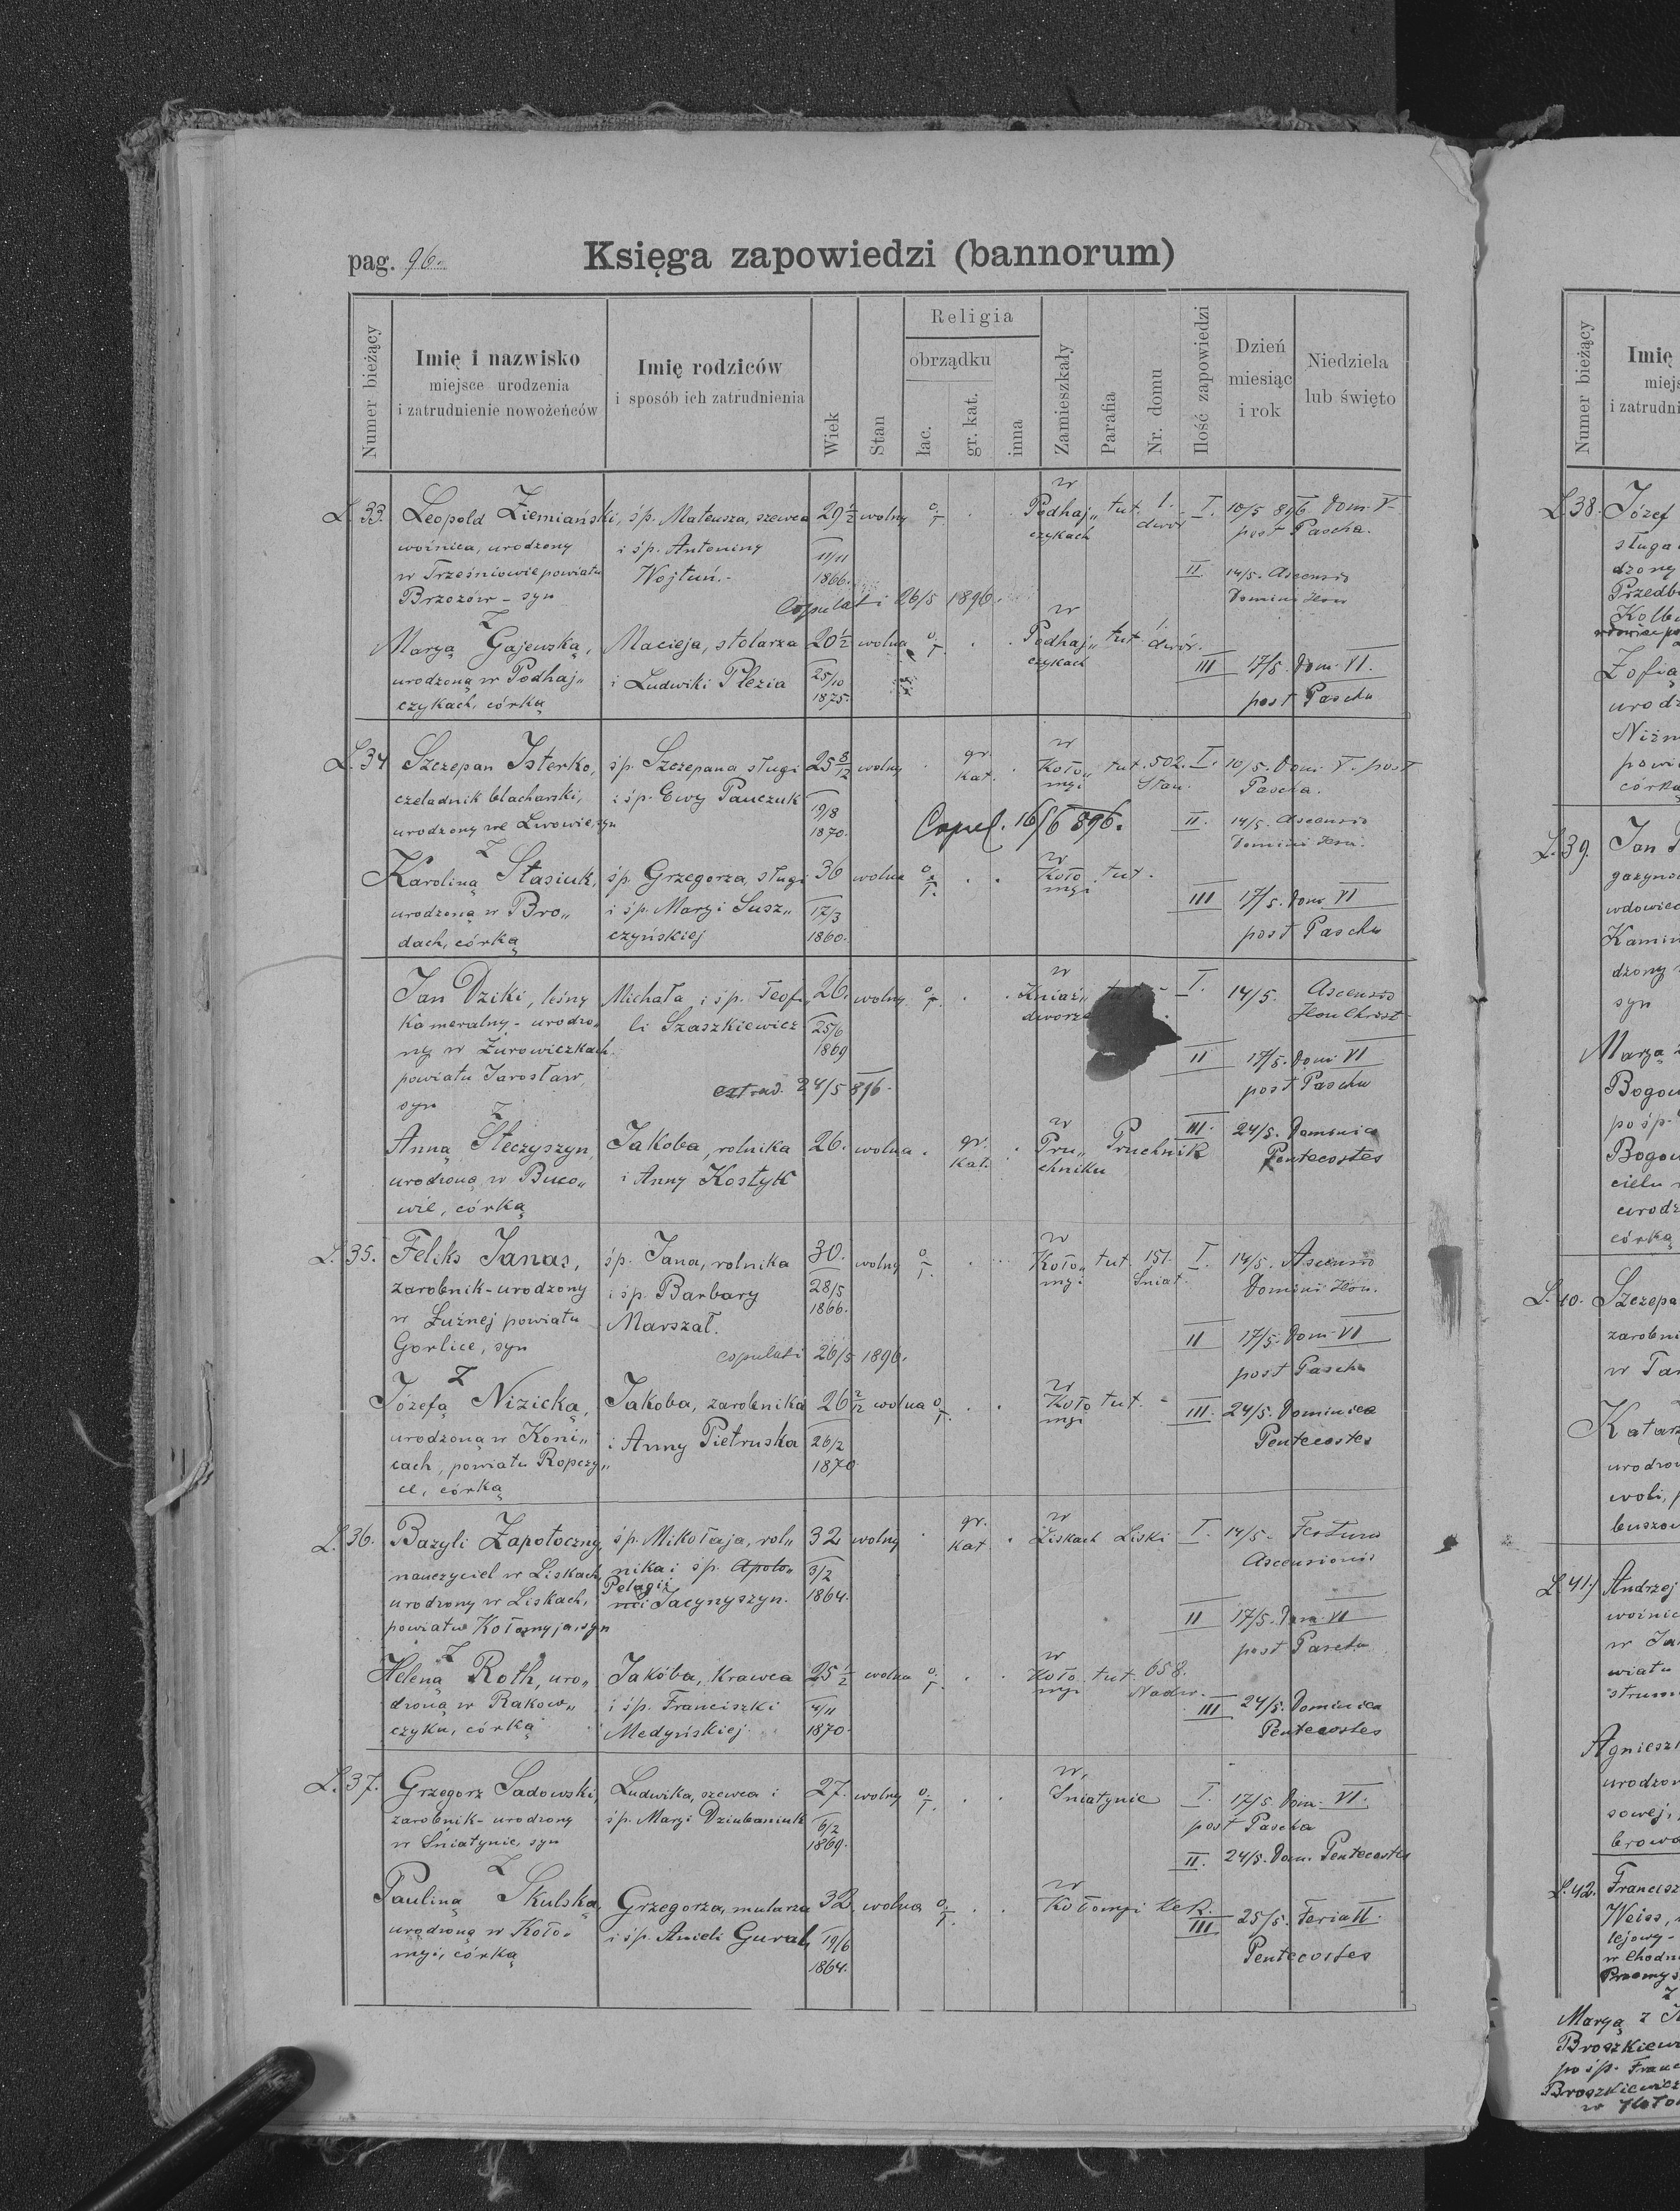 pag. 96.
Księga zapowiedzi (bannorum)
Numer bieżący
Imię i nazwisko
miejsce urodzenia
i zatrudnienie nowożeńców
Imię rodziców
i sposób ich zatrudnienia
Wiek
Stan
Religia
obrządku
łac.
gr. kat.
inna
Zamieszkały
Parafia
Nr. domu
Ilość zapowiedzi
Dzień
miesiąc
i rok
Niedziela
lub święto
L. 33. Leopold Ziemiański, śp. Mateusza, szewca 29 1/2 wolny w Podhaj„ tut. 1. I. 10/5 896 Dom. V
woźnica, urodzony i śp. Antoniny 11/11 czykach dwór post Pascha.
w Trześniowie powiatu Wojtuń. 1866. II 14/5. Ascensio
Brzozów - syn Copulati 26/5 1896. Domini
z
Maryą Gajewską, Macieja, stolarza 20 1/2 wolna w Podhaj„ tut. 1. dwór.
urodzoną w Podhaj„ i Ludwiki Plezia 25/10 czykach III 17/5. Dom. VI.
czykach, córką 1875. post Pascha
L. 34 Szczepan Isterko, śp. Szczepana sługi 25 8/12 wolny gr. kat. w Koło„ tut. 502. I. 10/5. Dom. V. post
czeladnik blacharski, i śp. Ewy Pauczuk 19/8 myi Stan. Pascha.
urodzony we Lwowie, syn 1870. Copul. 16/6 896. II. 14/5. Ascensio
z Domini
Karoliną Stasiuk, śp. Grzegorza, sługi 36 wolna w Koło tut.
urodzoną w Bro„ i śp. Maryi Susz„ 17/3 myi III 17/5. Dom. VI
dach, córką czyńskiej 1860. post Pascha
Jan Dziki, leśny Michała i śp. Teof. 26. wolny w Kniaź„ I. 14/5. Ascensio
Kameralny - urodzo„ li Szaszkiewicz 25/6 dworze
ny w Żurowiczkach 1869 II 17/5. Dom. VI
powiatu Jarosław, 24/5 896. post Pascha
syn
z III. 24/5. Dominica
Anną Steczyszyn, Jakoba, rolnika 26. wolna gr. kat. w Pru„ Pruchnik Pentecostes
urodzoną w Buco„ i Anny Kostyk chniku
wie, córką
L. 35. Feliks Janas, śp. Jana, rolnika 30. wolny w Koło„ tut. 151. I. 14/5. Ascensio
zarobnik - urodzony i śp. Barbary 28/5 myi Śniat. Domini
w Łużnej powiatu Marszał. 1866. II 17/5. Dom. VI
Gorlice, syn copulati 26/5 1896. post Pascha
z
Józefą Nizicką, Jakoba, zarobnika 26 2/12 wolna w Koło tut. III. 24/5. Dominica
urodzoną w Koni„ i Anny Pietruska 26/2 myi Pentecostes
cach, powiatu Ropczy„ 1870
ce, córką
L. 36. Bazyli Zapotoczny, śp. Mikołaja, rol„ 32 wolny gr. kat. w Liskach Liski I. 14/5. Festum
nauczyciel w Liskach, nika i śp. Apolo„ 3/2 Ascensionis
urodzony w Liskach, Pelagii nii Jacynyszyn. 1864. II 17/5. Dom. VI
powiatu Kołomyja, syn post Pascha
z
Heleną Roth, uro„ Jakóba, krawca 25 1/2 wolna w Koło tut. 658.
dzoną w Rakow„ i śp. Franciszki 4/11 myi Nadw. III 24/5. Dominica
czyku, córką Medyńskiej 1870. Pentecostes
L. 37. Grzegorz Sadowski, Ludwika, szewca i 27. wolny w Śniatynie I. 17/5. Dom. VI.
zarobnik - urodzony śp. Maryi Dziubaniuk 6/2 post Pascha
w Śniatynie, syn 1869. II. 24/5. Dom. Pentecostes
z
Pauliną Skulską, Grzegorza, mularza 32. wolna w Kołomyi III 25/5. Feria II.
urodzoną w Koło„ i śp. Anieli Gural 19/6 Pentecostes
myi, córką 1864.
Numer bieżący
Imię
i zatrudni
L. 38. Józef
sługa
dzony
Zofią
urodz
powi
córką
L. 39. Jan
wdowiec
Kamin
dzony
syn
Maryą
po śp.
urodz
córką
L. 40. Szczepa
zarobni
w Tar
Katar
urodzo
L. 41. Andrzej
woźnic
Agniesz
urodzo
L. 42. Francisz
Weiss,
Maryą z
Broszkiewi
po śp. Franc
Broszkiewicz